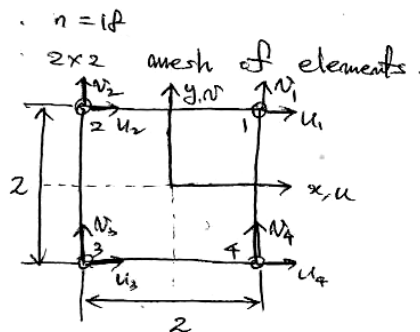 n = 18
2×2 mesh of elements.
v₂ y,v v₁
2 u₂ 1 u₁
2 x,u
v₃ v₄
3 u₃ 4 u₄
2